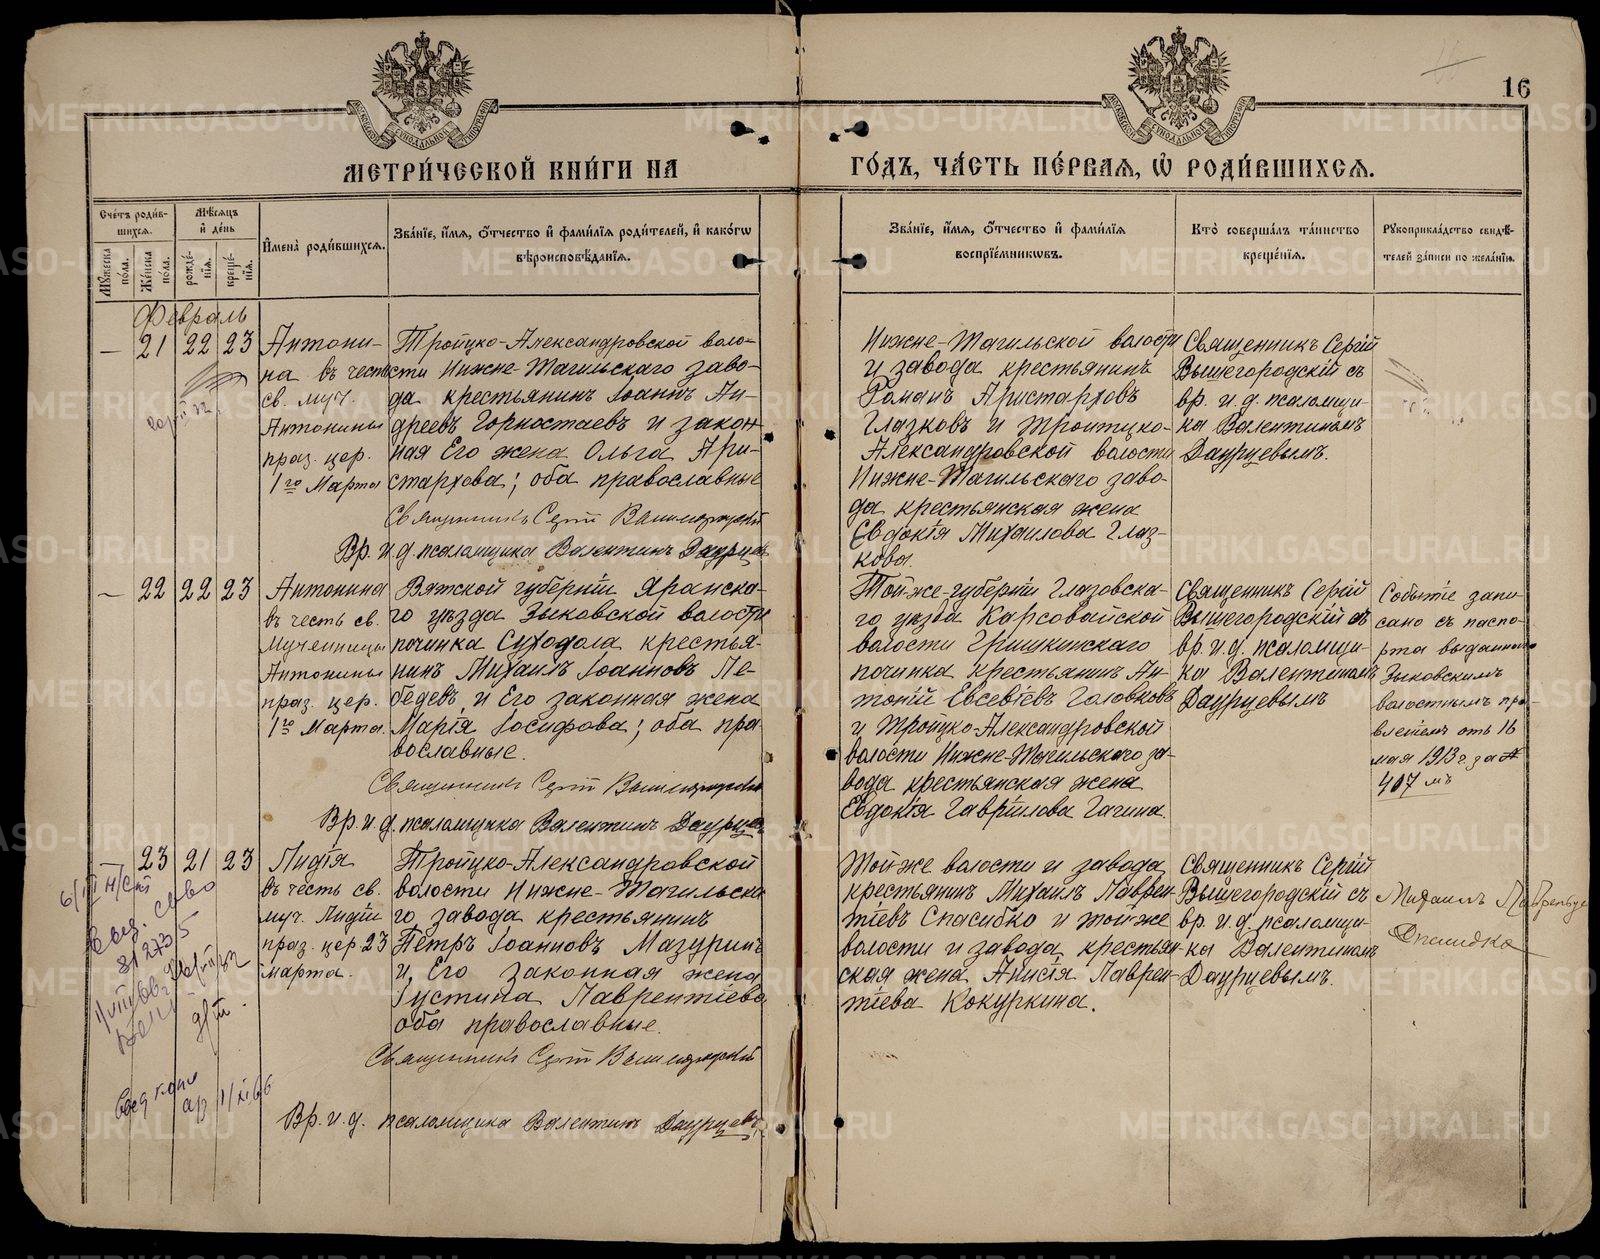 16
МЕТРИ́ЧЕСКОЙ КНИ́ГИ НА
ГО́ДЪ, ЧА́СТЬ ПЕ́РВАЯ, Ѡ҆ РОДИ́ВШИХСЯ.
Сче́тъ роди́в-
шихся.
Мѣ́сяцъ
и҆ де́нь
Мꙋ́жеска
по́ла.
Же́нска
по́ла.
рожде́-
нїя.
креще́-
нїя.
И҆мена̀ роди́вшихся.
Зва́нїе, и҆́мя, ѻ҆́тчество и҆ фами́лїя роди́телей, и҆ како́гѡ
вѣроисповѣ́данїя.
Зва́нїе, и҆́мя, ѻ҆́тчество и҆ фами́лїя
воспрїе́мникѡвъ.
Кто̀ соверша́лъ та́инство
креще́нїя.
Рꙋкоприкла́дство свидѣ́-
телей за́писи по жела́нїю.
Февраль
— 21 22 23
Антони-
на въ честь
св. муч.
Антонины
праз. цер.
1го Марта
Тройцко-Александровской воло-
сти Нижне-Тагильскаго заво-
да крестьянинъ Іоаннъ Ан-
дреевъ Горностаевъ и закон-
ная Его жена Ольга Ари-
стархова; оба православные
Священникъ Сергій Вышегородскій
Вр. и. д. псаломщика Валентинъ Даурцевъ
Нижне-Тагильской волости
и завода крестьянинъ
Романъ Аристарховъ
Глазковъ и Тройцко-
Александровской волости
Нижне-Тагильскаго заво-
да крестьянская жена
Евдокія Михаилова Глаз-
кова.
Священникъ Сергій
Вышегородскій съ
вр. и. д. псаломщи-
ка Валентиномъ
Даурцевымъ.
— 22 22 23
Антонина
въ честь св.
Мученницы
Антонины
праз. цер.
1го Марта.
Вятской губерніи Яранска-
го уѣзда Зыковской волости
починка Суходола крестья-
нинъ Михаилъ Іоанновъ Ле-
бедевъ, и Его законная жена
Марія Іосифова; оба пра-
вославные.
Священникъ Сергій Вышегородскій
Вр. и. д. псаломщика Валентинъ Даурцевъ
Той же губерніи Глазовска-
го уѣзда Карсовайской
волости Гришкинскаго
починка крестьянинъ Ан-
тоній Евсевіевъ Головковъ
и Тройцко-Александровской
волости Нижне-Тагильскаго за-
вода крестьянская жена
Евдокія Гавріилова Гагина.
Священникъ Сергій
Вышегородскій съ
вр. и. д. псаломщи-
ка Валентиномъ
Даурцевымъ
Событіе запи-
сано съ паспо-
рта выданнаго
Зыковскимъ
волостнымъ пра-
вленіемъ отъ 16
мая 1913 г. за №
407 мъ
23 21 23
Лидія
въ честь св.
муч. Лидіи
праз. цер. 23
марта.
Тройцко-Александровской
волости Нижне-Тагильска
го, завода крестьянинъ
Петръ Іоанновъ Мазуринъ
и, Его законная жена
Іустина Лаврентіева
оба православные.
Священникъ Сергій Вышегородскій
Вр. и. д. псаломщика Валентинъ Даурцевъ
Той же волости и завода
крестьянинъ Михаилъ Лаврен-
тіевъ Спасибко и той же
волости и завода, крестьян-
ская жена, Анисія Лаврен-
тіева Кокуркина.
Священникъ Сергій
Вышегородскій съ
вр. и. д. псаломщи-
ка Валентиномъ
Даурцевымъ.
Михаилъ
METRIKI.GASO-URAL.RU